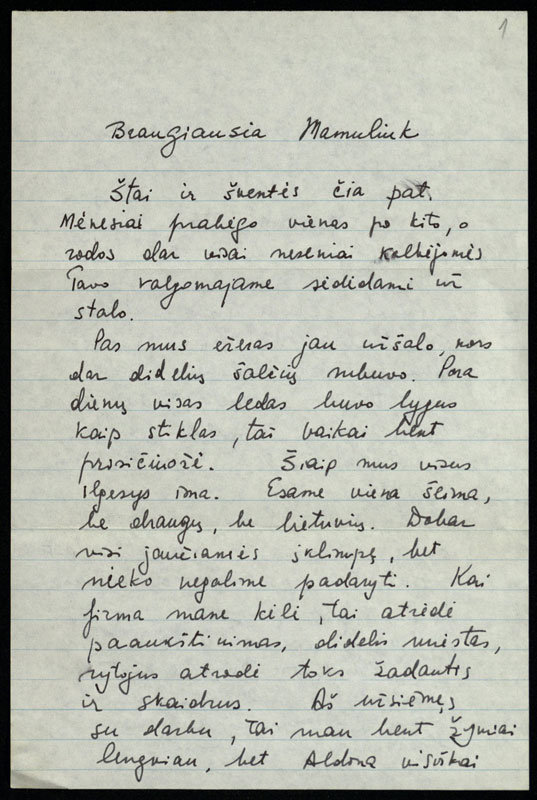 1
Brangiausia Mamuliuk
Štai ir šventės čia pat.
Mėnesiai prabėgo vienas po kito, o
rodos dar visai neseniai kalbėjomės
Tavo valgomajame sėdėdami už
stalo.
Pas mus ežeras jau užšalo, nors
dar didelių šalčių nebuvo. Pora
dienų visas ledas buvo lygus
kaip stiklas, tai vaikai bent
prisičiuožė. Šiaip mus visus
ilgesys ima. Esame viena šeima,
be draugų, be lietuvių. Dabar
visi jaučiamės įklimpę, bet
nieko negalime padaryti. Kai
firma mane kėlė, tai atrodė
paaukštinimas, didelis miestas,
rytojus atrodė toks žadantis
ir skaidrus. Aš užsiėmęs
su darbu, tai man bent žymiai
lengviau, bet Aldona visiškai